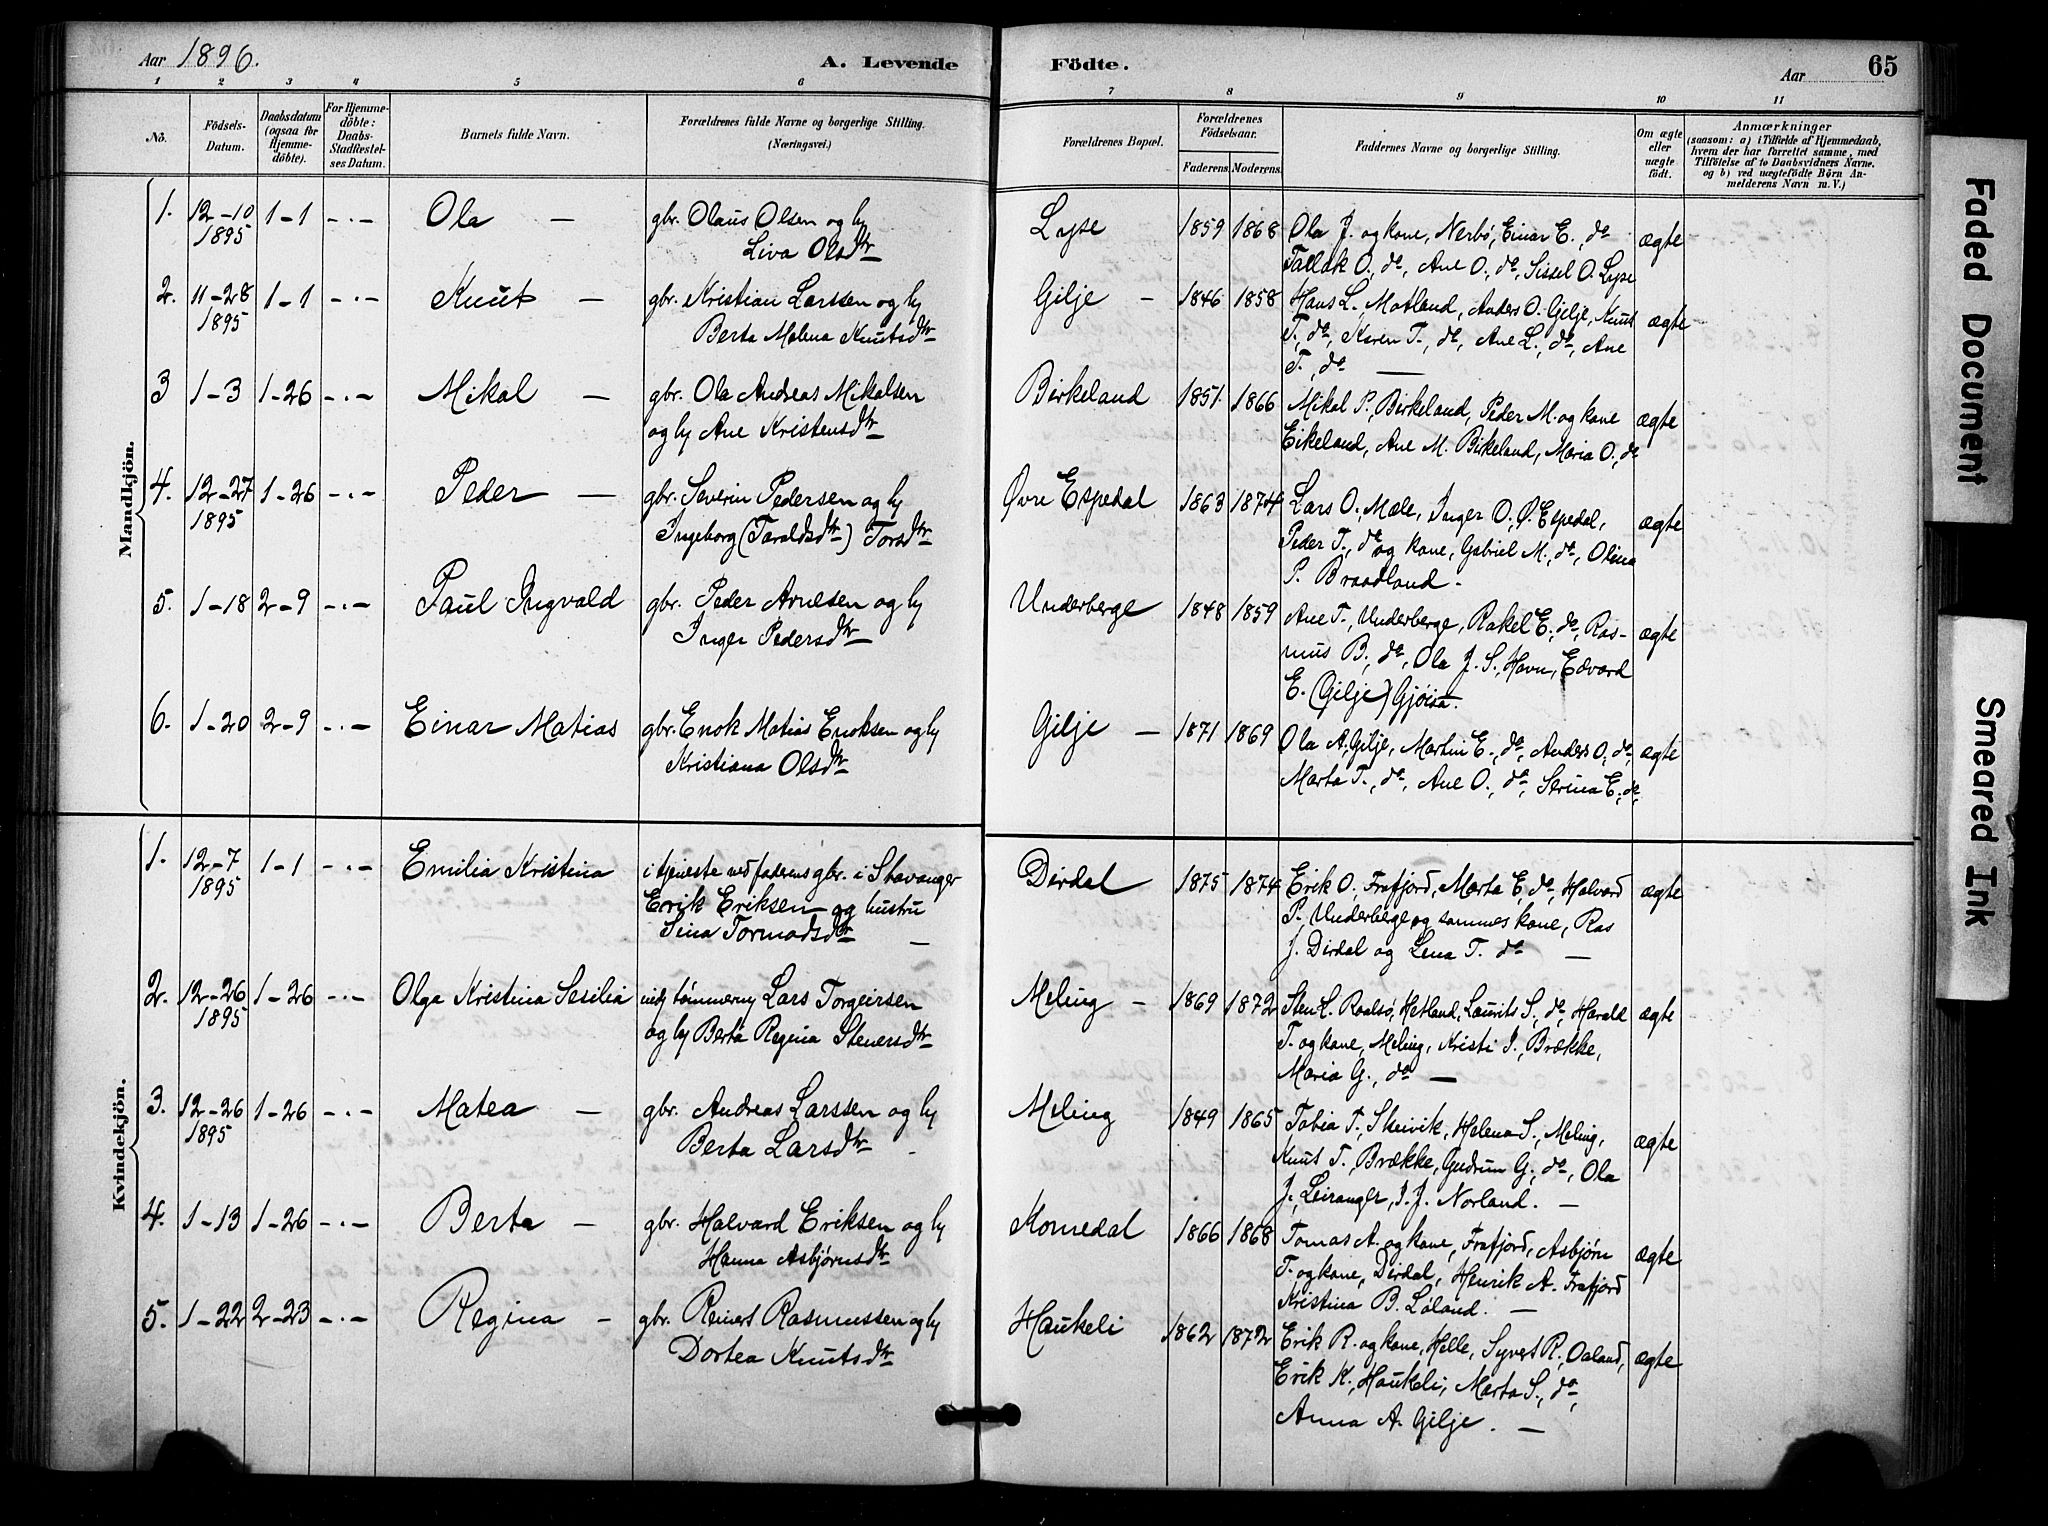 Aar 1896.
A. Levende Födte.
Aar 65
1 2 3 4 5 6 7 8 9 10 11
No. Födsels-Datum. Daabsdatum (ogsaa for Hjemmedöbte). For Hjemmedöbte: Daabs-Stadfæstelses Datum. Barnets fulde Navn. Forældrenes fulde Navne og borgerlige Stilling. (Næringsvei.) Forældrenes Bopæl. Forældrenes Födselsaar. Faderens Moderens Faddernes Navne og borgerlige Stilling. Om ægte eller uægte födt. Anmærkninger
(saasom: a) i Tilfælde af Hjemmedaab, hvem der har forrettet samme, med Tilföielse af to Daabsvidners Navne, og b) ved uægtefödte Börn Anmelderens Navn m. V.)
Mandkjön.
1. 12-10 1-1 -.- Ola — gbr. Olaus Olsen og hu Lyse 1859 1868 Ola J. og kone, Nerbø, Einar E., do ægte
1895 Liva Olsdtr Tallak O., do, Ane O., do, Sissel O. Lyse
2. 11-28 1-1 -.- Knut — gbr. Kristian Larssen og hu Gilje — 1846 1858 Hans L., Motland, Anders O. Gilje, Knut ægte
1895 Berta Malena Knutsdtr T., do, Karen T., do, Ane L., do, Ane
T., do —
3 1-3 1-26 -.- Mikal — gbr. Ola Andreas Mikalsen Birkeland 1851 1866 Mikal P. Birkeland, Peder M. og kone ægte
og hu Ane Kristensdtr Eikeland, Ane M. Birkeland, Maria O., do
4. 12-27 1-26 -.- Peder — gbr. Severin Pedersen og hu Øvre Espedal 1863 1874 Lars O., Mæle, Inger O., Ø. Espedal, ægte
1895 Ingeborg (Taraldsdtr) Torsdtr Peder T., do og kone, Gabriel M., do, Olina
P. Braadland -
5. 1-18 2-9 -.- Paul Ingvald gbr. Peder Arnesen og hu Underberge 1848 1859 Ane T., Underberge, Rakel E., do, Ras- ægte
Inger Pedersdtr mus B., do, Ola J. S., Havn, Edvard
E. (Gilje) Gjøisa.
6. 1-20 2-9 -.- Einar Matias gbr. Enok Matias Enoksen og hu Gilje — 1871 1869 Ola A. Gilje, Martin E., do, Anders O., do, ægte
Kristiana Olsdtr Marta T., do, Ane O., do, Serina E., do,
Kvindekjön.
1. 12-7 1-1 -.- Emilia Kristina i tjeneste ved faderens gbr. i Stavanger Dirdal 1875 1874 Erik O., Frafjord, Marta E., do, Halvard ægte
1895 Erik Eriksen og hustru P., Underberge og sammes kone, Ras
Sina Tormodsdtr — J. Dirdal og Lena T. do —
2. 12-26 1-26 -.- Olga Kristina Sesilia Lars Torgeirsen Meling — 1869 1872 Sten L. Raalsø, Hetland, Laurits S., do, Harald ægte
1895 og hu Berta Regina Stenersdtr T. og kone, Meling, Kristi J., Brække,
Maria G., do —
3. 12-26 1-26 -.- Matea — gbr. Andreas Larssen og hu Meling 1849 1865 Tobia T., Skeivik, Helena S., Meling, ægte
1895 Berta Larsdtr Knut T., Brække, Gudrun G., do, Ola
J., Leiranger, J. J. Norland. —
4. 1-13 1-26 -.- Berta — gbr. Halvard Eriksen og hu Komedal 1866 1868 Tomas A. og kone, Frafjord, Asbjørn ægte
Hanna Asbjørnsdtr T. og kone, Dirdal, Henrik A. Frafjord
Kristina B. Løland. —
5. 1-22 2-23 -.- Regina — gbr. Reinert Rasmussen og hu Haukeli 1862 1872 Erik R. og kone, Helle, Syvert R., Oaland, ægte
Dortea Knutsdtr Erik K., Haukeli, Marta S., do,
Anna A. Gilje. —
Faded Document
Smeared Ink